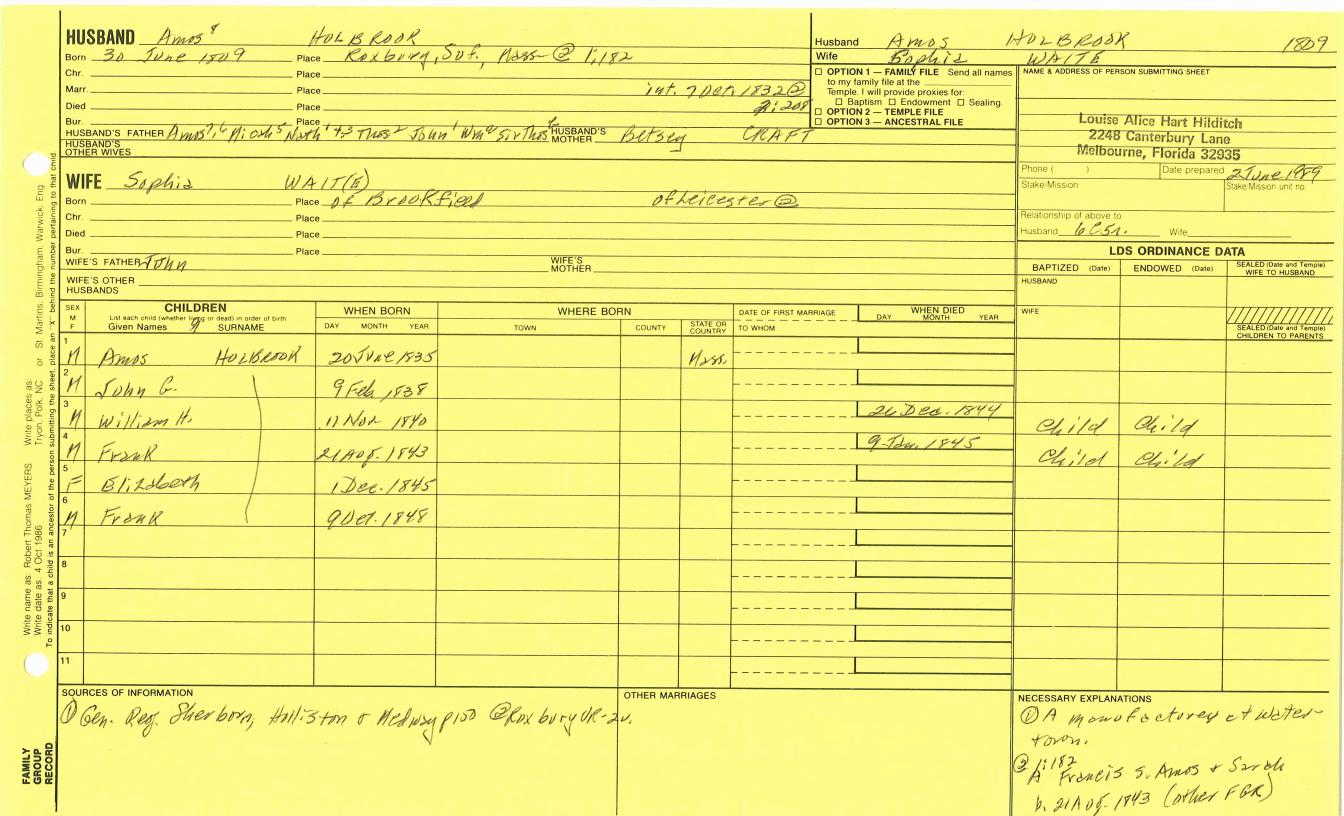 HUSBAND Amos 8 HOLBROOK
Born 30 June 1809 Place Roxbury, Suf., Mass @ 1:182
Chr. Place
Marr. Place int. 7 Oct. 1832 @
Died Place 2:208
Bur. Place
HUSBAND'S FATHER Amos 7, 6 Micah 5 Nath' 4+3 Thos 2 John 1 Wm Sir Thos HUSBAND'S MOTHER Betsey CRAFT
HUSBAND'S OTHER WIVES
WIFE Sophia WAIT(E)
Born Place of Brookfield of Leicester @
Chr. Place
Died Place
Bur. Place
WIFE'S FATHER John WIFE'S MOTHER
WIFE'S OTHER HUSBANDS
Husband Amos HOLBROOK 1809
Wife Sophia WAITE
☐ OPTION 1 — FAMILY FILE Send all names
to my family file at the
Temple. I will provide proxies for:
☐ Baptism ☐ Endowment ☐ Sealing
☐ OPTION 2 — TEMPLE FILE
☐ OPTION 3 — ANCESTRAL FILE
NAME & ADDRESS OF PERSON SUBMITTING SHEET
Louise Alice Hart Hilditch
2248 Canterbury Lane
Melbourne, Florida 32935
Phone ( ) Date prepared 2 June 1989
Stake/Mission Stake/Mission unit no.
Relationship of above to
Husband 6C5r. Wife
LDS ORDINANCE DATA
BAPTIZED (Date) ENDOWED (Date) SEALED (Date and Temple) WIFE TO HUSBAND
HUSBAND
WIFE
SEALED (Date and Temple) CHILDREN TO PARENTS
SEX M F
CHILDREN
List each child (whether living or dead) in order of birth
Given Names 9 SURNAME
WHEN BORN
DAY MONTH YEAR
WHERE BORN
TOWN COUNTY STATE OR COUNTRY
DATE OF FIRST MARRIAGE
TO WHOM
WHEN DIED
DAY MONTH YEAR
1 M Amos HOLBROOK 20 June 1835 Mass.
2 M John G. 9 Feb. 1838
3 M William H. 11 Nov 1840 26 Dec. 1844 Child Child
4 M Frank 21 Aug. 1843 9 Jan. 1845 Child Child
5 F Elizabeth 1 Dec. 1845
6 M Frank 9 Oct. 1848
7
8
9
10
11
SOURCES OF INFORMATION
① Gen. Reg. Sherborn, Holliston & Medway p100 @ Roxbury VR-2v.
OTHER MARRIAGES
NECESSARY EXPLANATIONS
① A manufacturer at Water-
town.
② 1:182
A Francis s. Amos & Sarah
b. 21 Aug. 1843 (other FGR)
Write name as: Robert Thomas MEYERS Write places as: Tryon, Polk, NC or St. Martins, Birmingham, Warwick, Eng.
Write date as: 4 Oct 1986
To indicate that a child is an ancestor of the person submitting the sheet, place an "X" behind the number pertaining to that child.
FAMILY
GROUP
RECORD